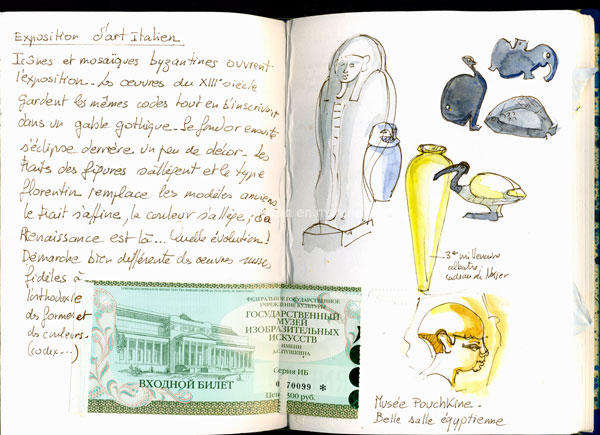 Exposition d'art italien
Icônes et mosaïques byzantines ouvrent
l'exposition. Les œuvres du XIIIe siècle
gardent les mêmes codes tout en s'inscrivant
dans un gable gothique. Le fond or ensuite
s'éclipse derrière un peu de décor. Les
traits des figures s'allègent et le type
florentin remplace les modèles anciens
le trait s'affine, la couleur s'allège, déjà
Renaissance est là... Quelle évolution!
Démarche bien différente des œuvres russes
fidèles à
l'orthodoxie
des formes et
des couleurs.
(codex...)
ФЕДЕРАЛЬНОЕ ГОСУДАРСТВЕННОЕ
УЧРЕЖДЕНИЕ КУЛЬТУРЫ
ГОСУДАРСТВЕННЫЙ
МУЗЕЙ
ИЗОБРАЗИТЕЛЬНЫХ
ИСКУССТВ
ИМЕНИ
А.С.ПУШКИНА
Серия ИБ
070099 *
Цена 300 руб.
ВХОДНОЙ БИЛЕТ
3e millénaire
albâtre
cadeau du
Musée Pouchkine -
Belle salle égyptienne